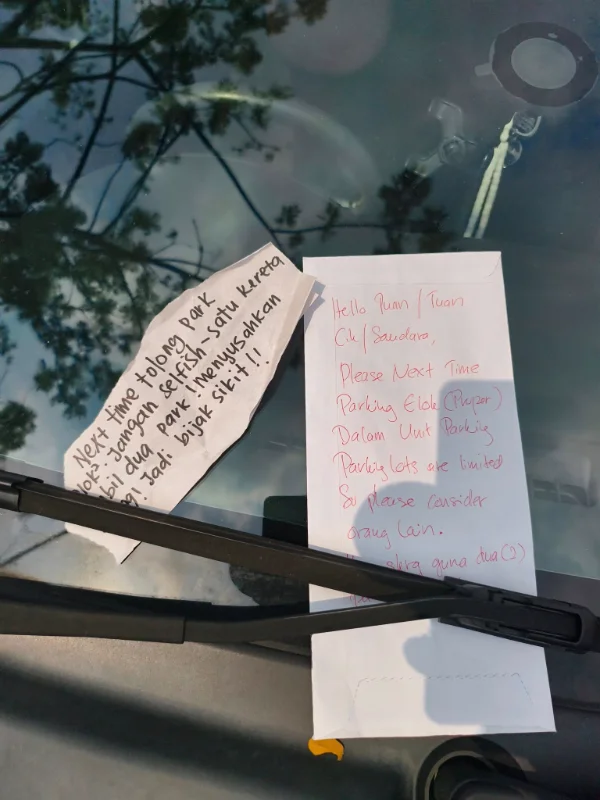 Next time tolong park
elok². Jangan selfish - satu kereta
ambil dua park! menyusahkan
Jadi bijak sikit!!
Hello Puan / Tuan
Cik / Saudara,
Please Next Time
Parking Elok (Proper)
Dalam Unit Parking
Parking lots are limited
So please consider
orang lain.
skrg guna dua (2)